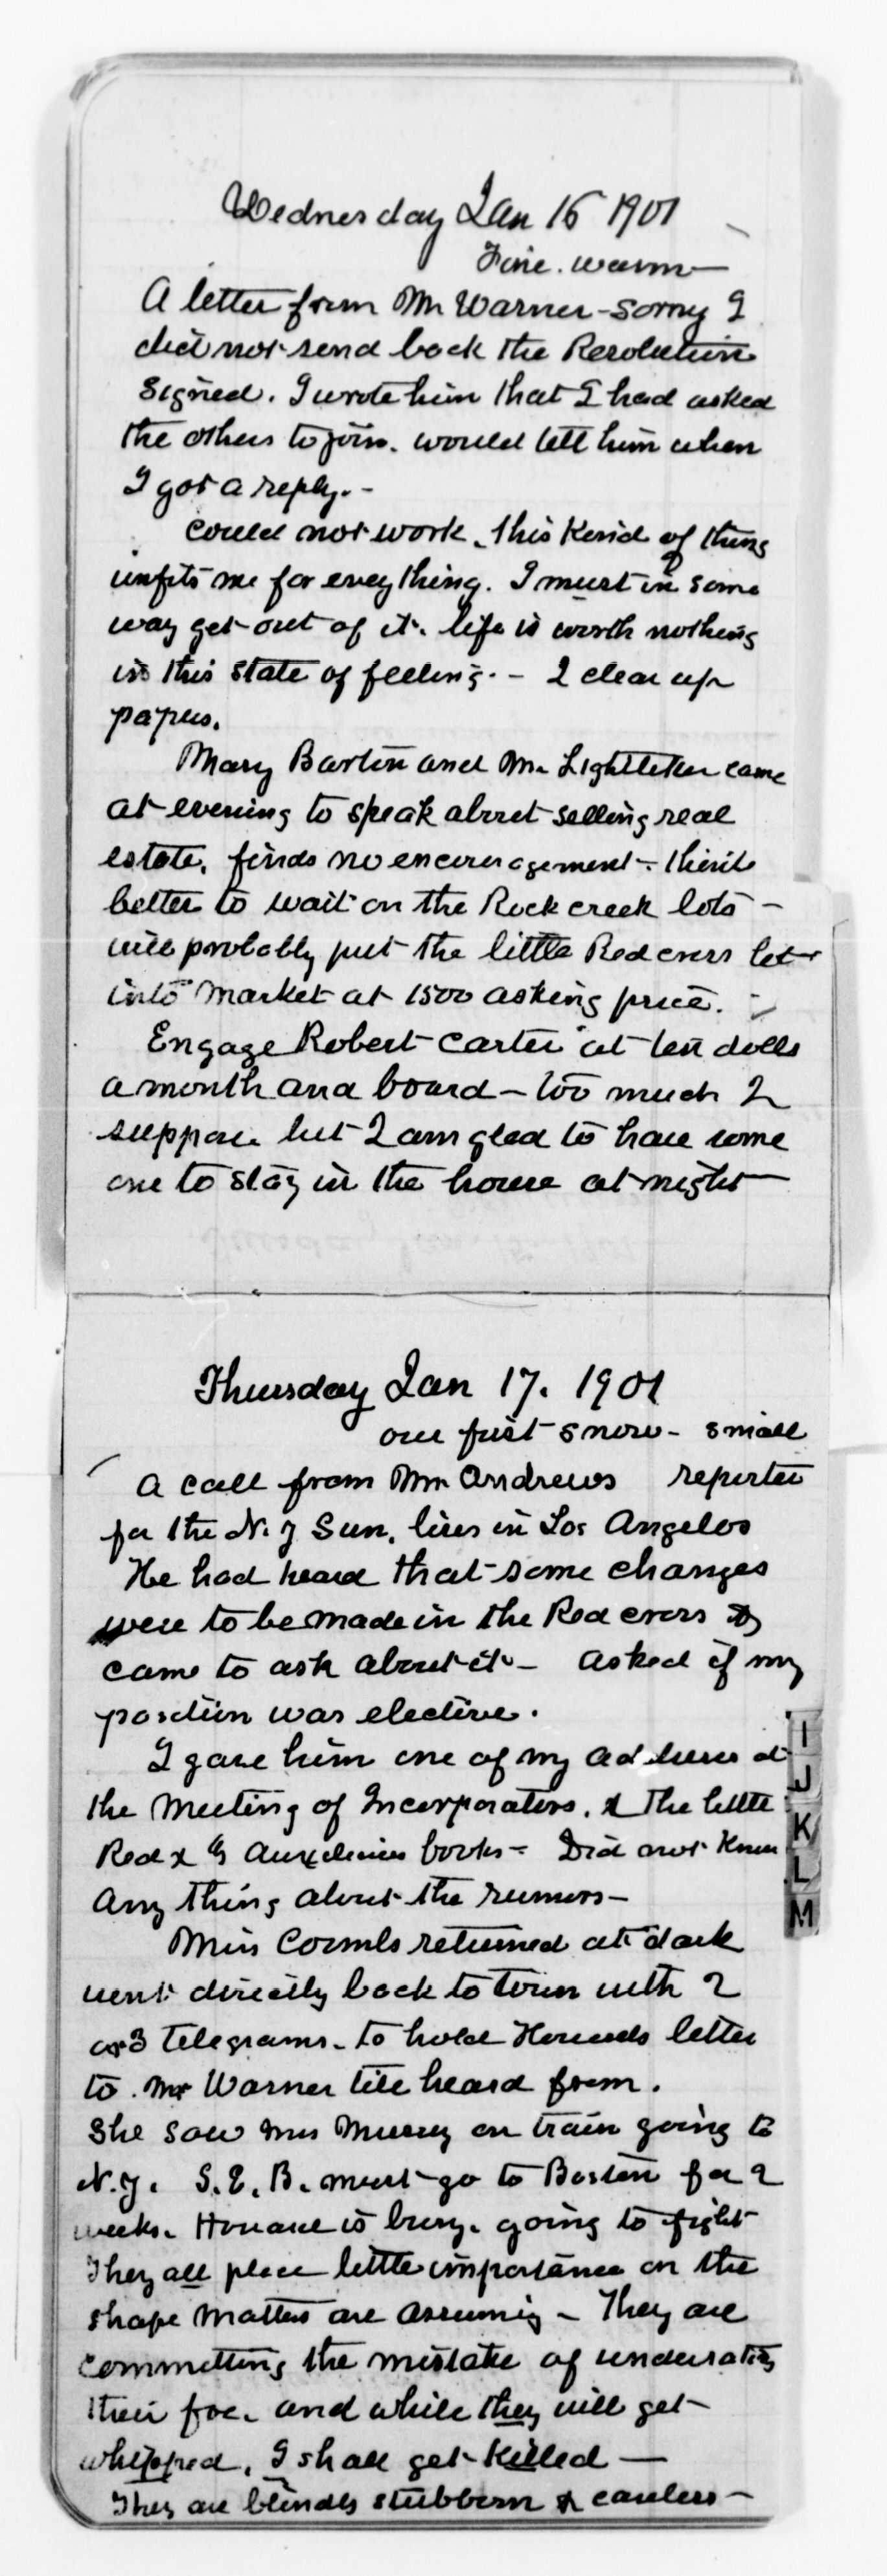 Wednesday Jan 16 1901
Fine. warm—
A letter from Mr Warner - sorry I
did not send back the Resolution
signed. I wrote him that I had asked
the others to join. would tell him when
I got a reply. -
could not work. this Kind of thing
unfits me for everything. I must in some
way get out of it. life is worth nothing
in this state of feeling. - I clear up
papers.
Mary Barton and Mr came
at evening to speak about selling real
estate. finds no encouragement - think
better to wait on the Rock creek lots -
will probably put the little Red cross lot
into market at 1500 asking price. -
Engage Robert Carter at ten dolls
a month and board - too much I
suppose but I am glad to have some
one to stay in the house at night -
Thursday Jan 17. 1901
our first snow - small
A call from Mr Andrews reporter
for the N. Y Sun. lives in Los Angelos
He had heard that some changes
were to be made in the Red cross &
came to ask about it - asked if my
position was elective.
I gave him one of my addresses at
the Meeting of Incorporators. & the little
Red x books - Did not Know
any thing about the rumors -
Miss Coombs returned at dark
went directly back to town with 2
or 3 telegrams. to hold Howards letter
to Mr Warner till heard from.
She saw Mrs Mussey on train going to
N.Y. S. E. B. must go to Boston for 2
weeks. Howard is busy. going to fight
They all place little importance on the
shape matters are assuming - They are
committing the mistake of underrating
their foe. and while they will get
whipped, I shall get Killed —
They are blindly stubborn & careless -
I
J
K
L
M